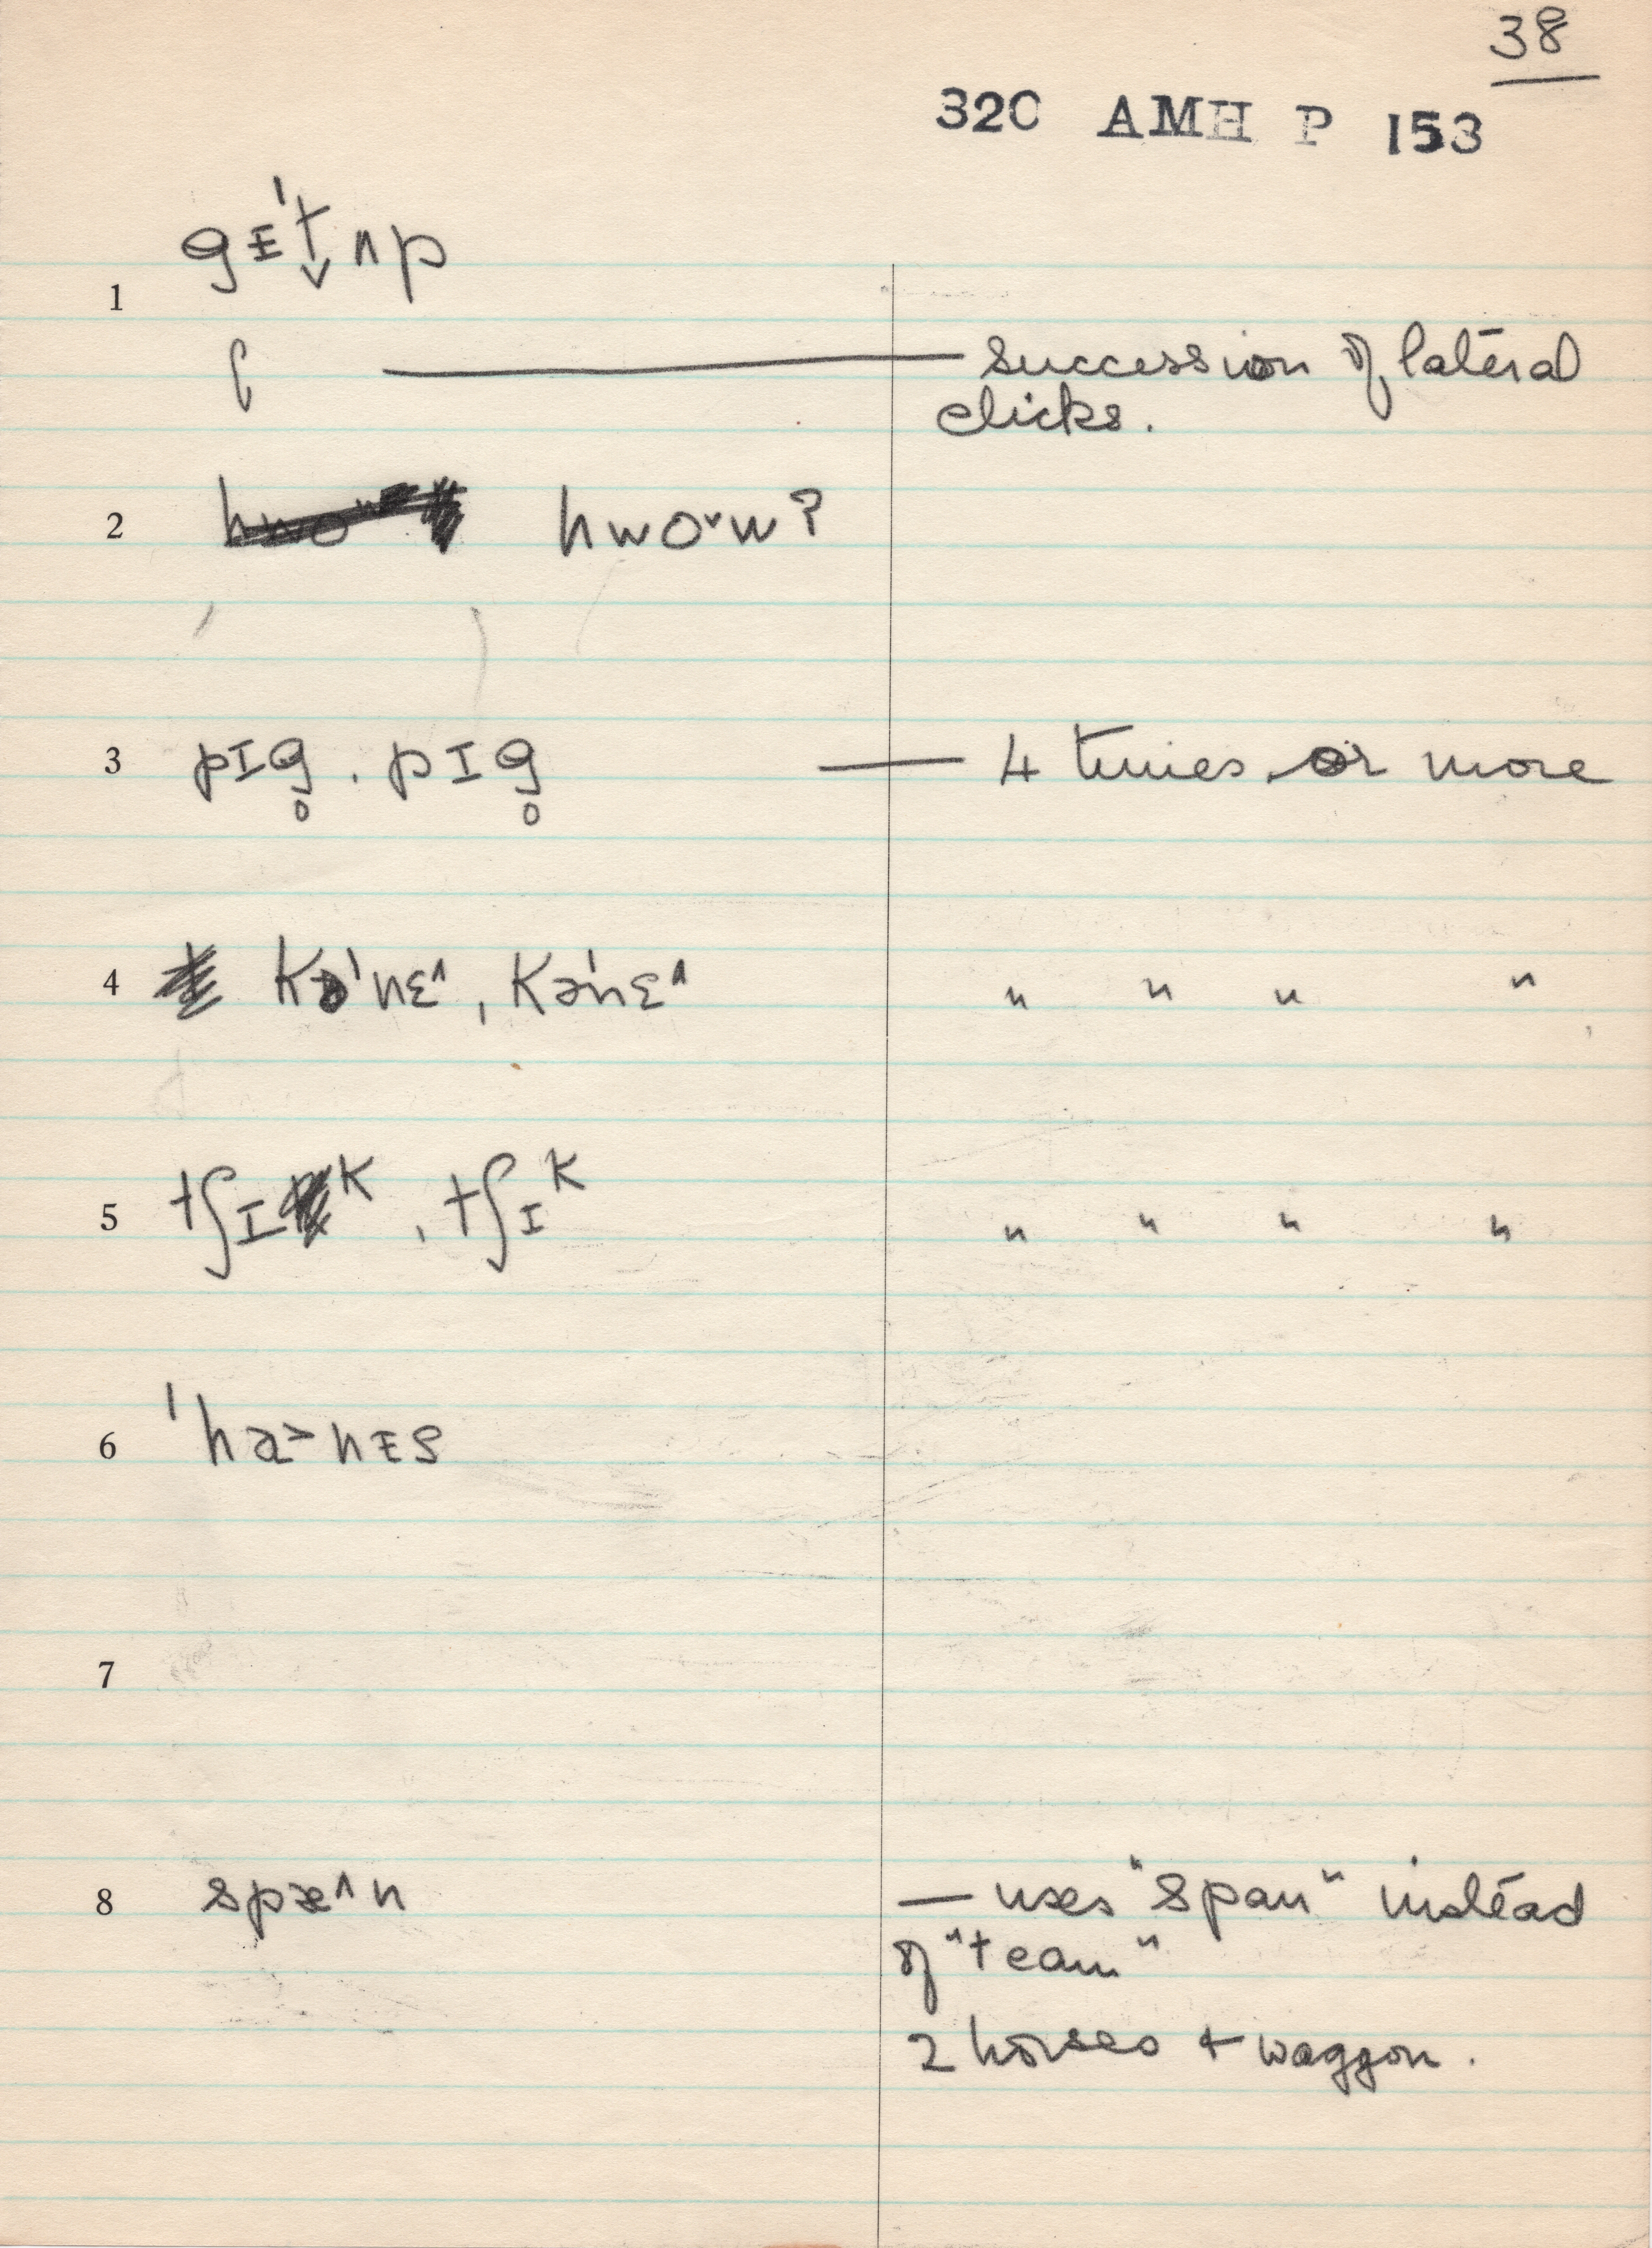 38
32C AMH P 153
1 gᵻˈt̬ʌp
ʗ — succession of lateral
clicks.
2 hwo˅w?
3 pɪg̥ . pɪg̥ — 4 times or more
4 kəˈnɛ^, kəˈnɛ^ " " " "
5 tʃɪᴷ, tʃɪᴷ " " " "
6 ˈha>nᵻs
7
8 spæ^n — uses "span" instead
of "team"
2 horses + waggon.